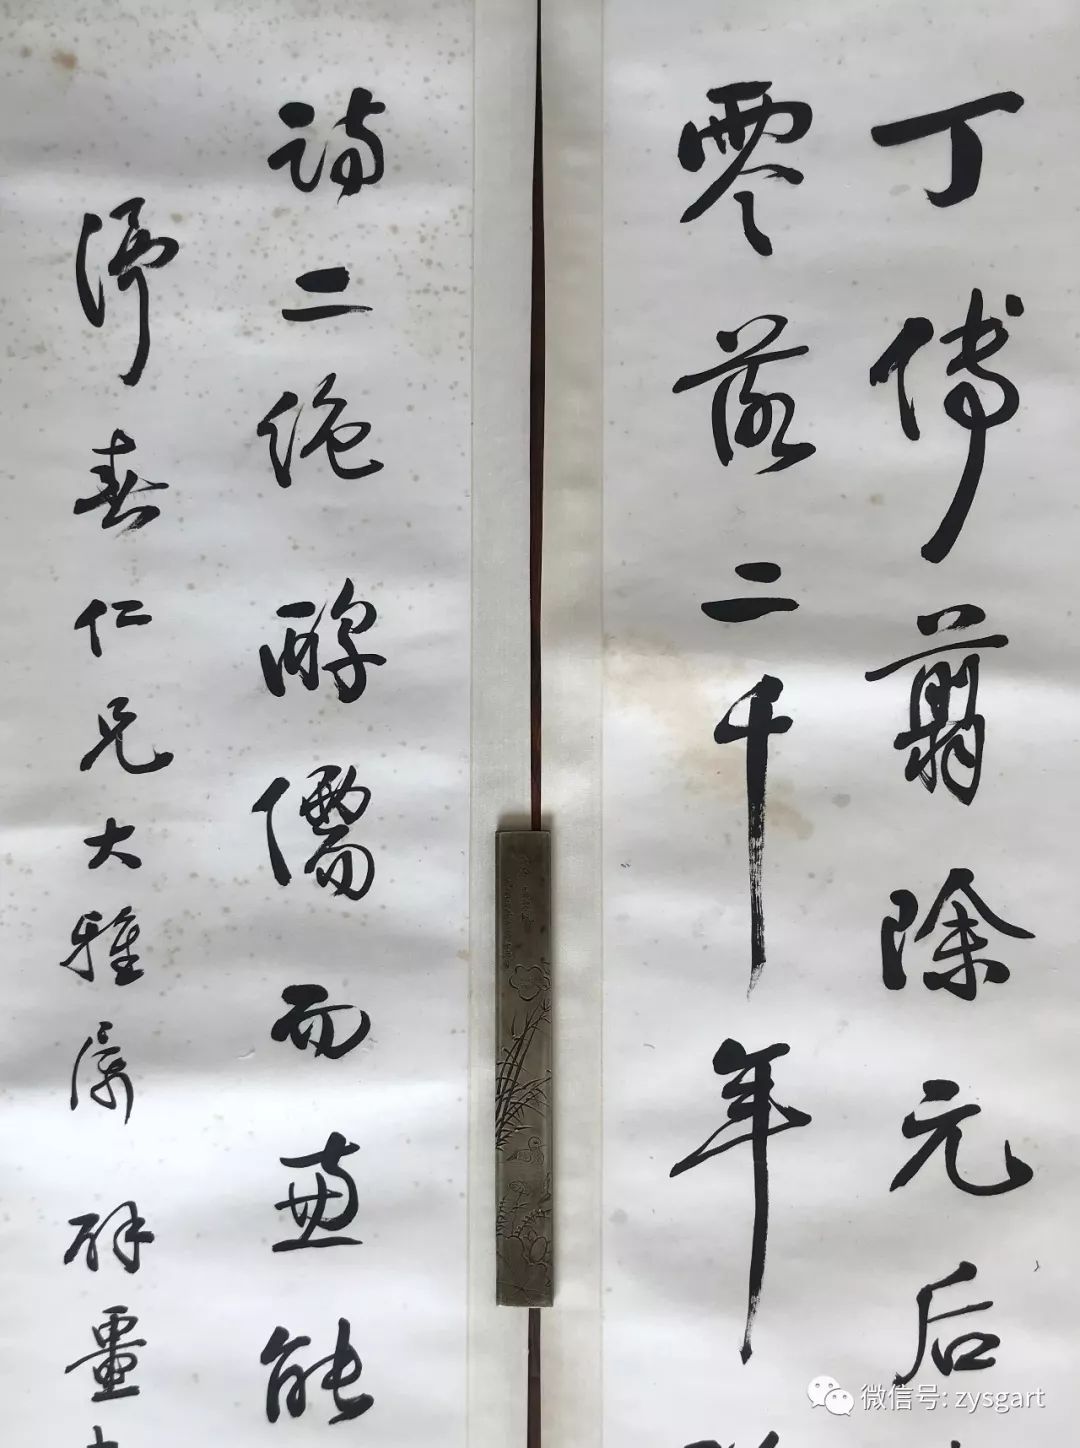 丁傅翦除元后
零落二千年
詩二絕醇儒而能
春仁兄大雅屬
微信号: zysgart